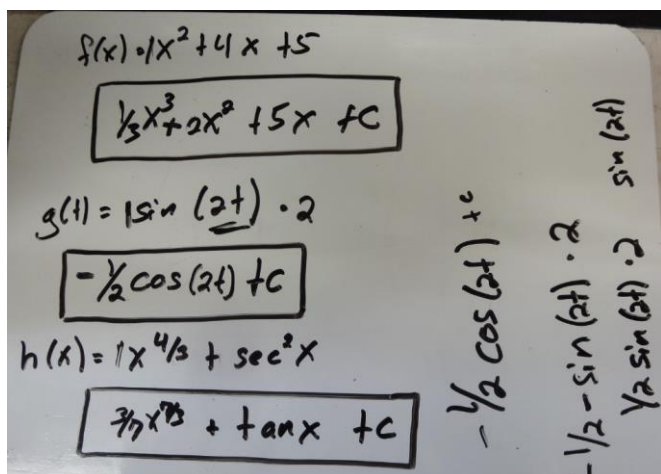 f(x)=1x²+4x+5
⅓x³+2x²+5x+C
g(t)=1sin(2t)·2
-½cos(2t)+C
h(x)=1x^4/3+sec²x
3/7x^7/3+tanx+C
-½cos(2t)+c
-½-sin(2t)·2
½sin(2t)·2 sin(2t)